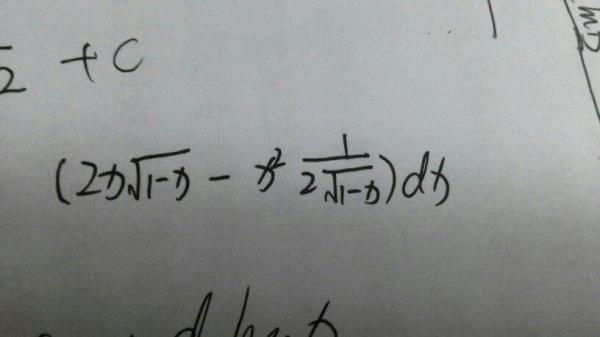 2 + C
(2x√(1-x) - x² 1/(2√(1-x)))dx